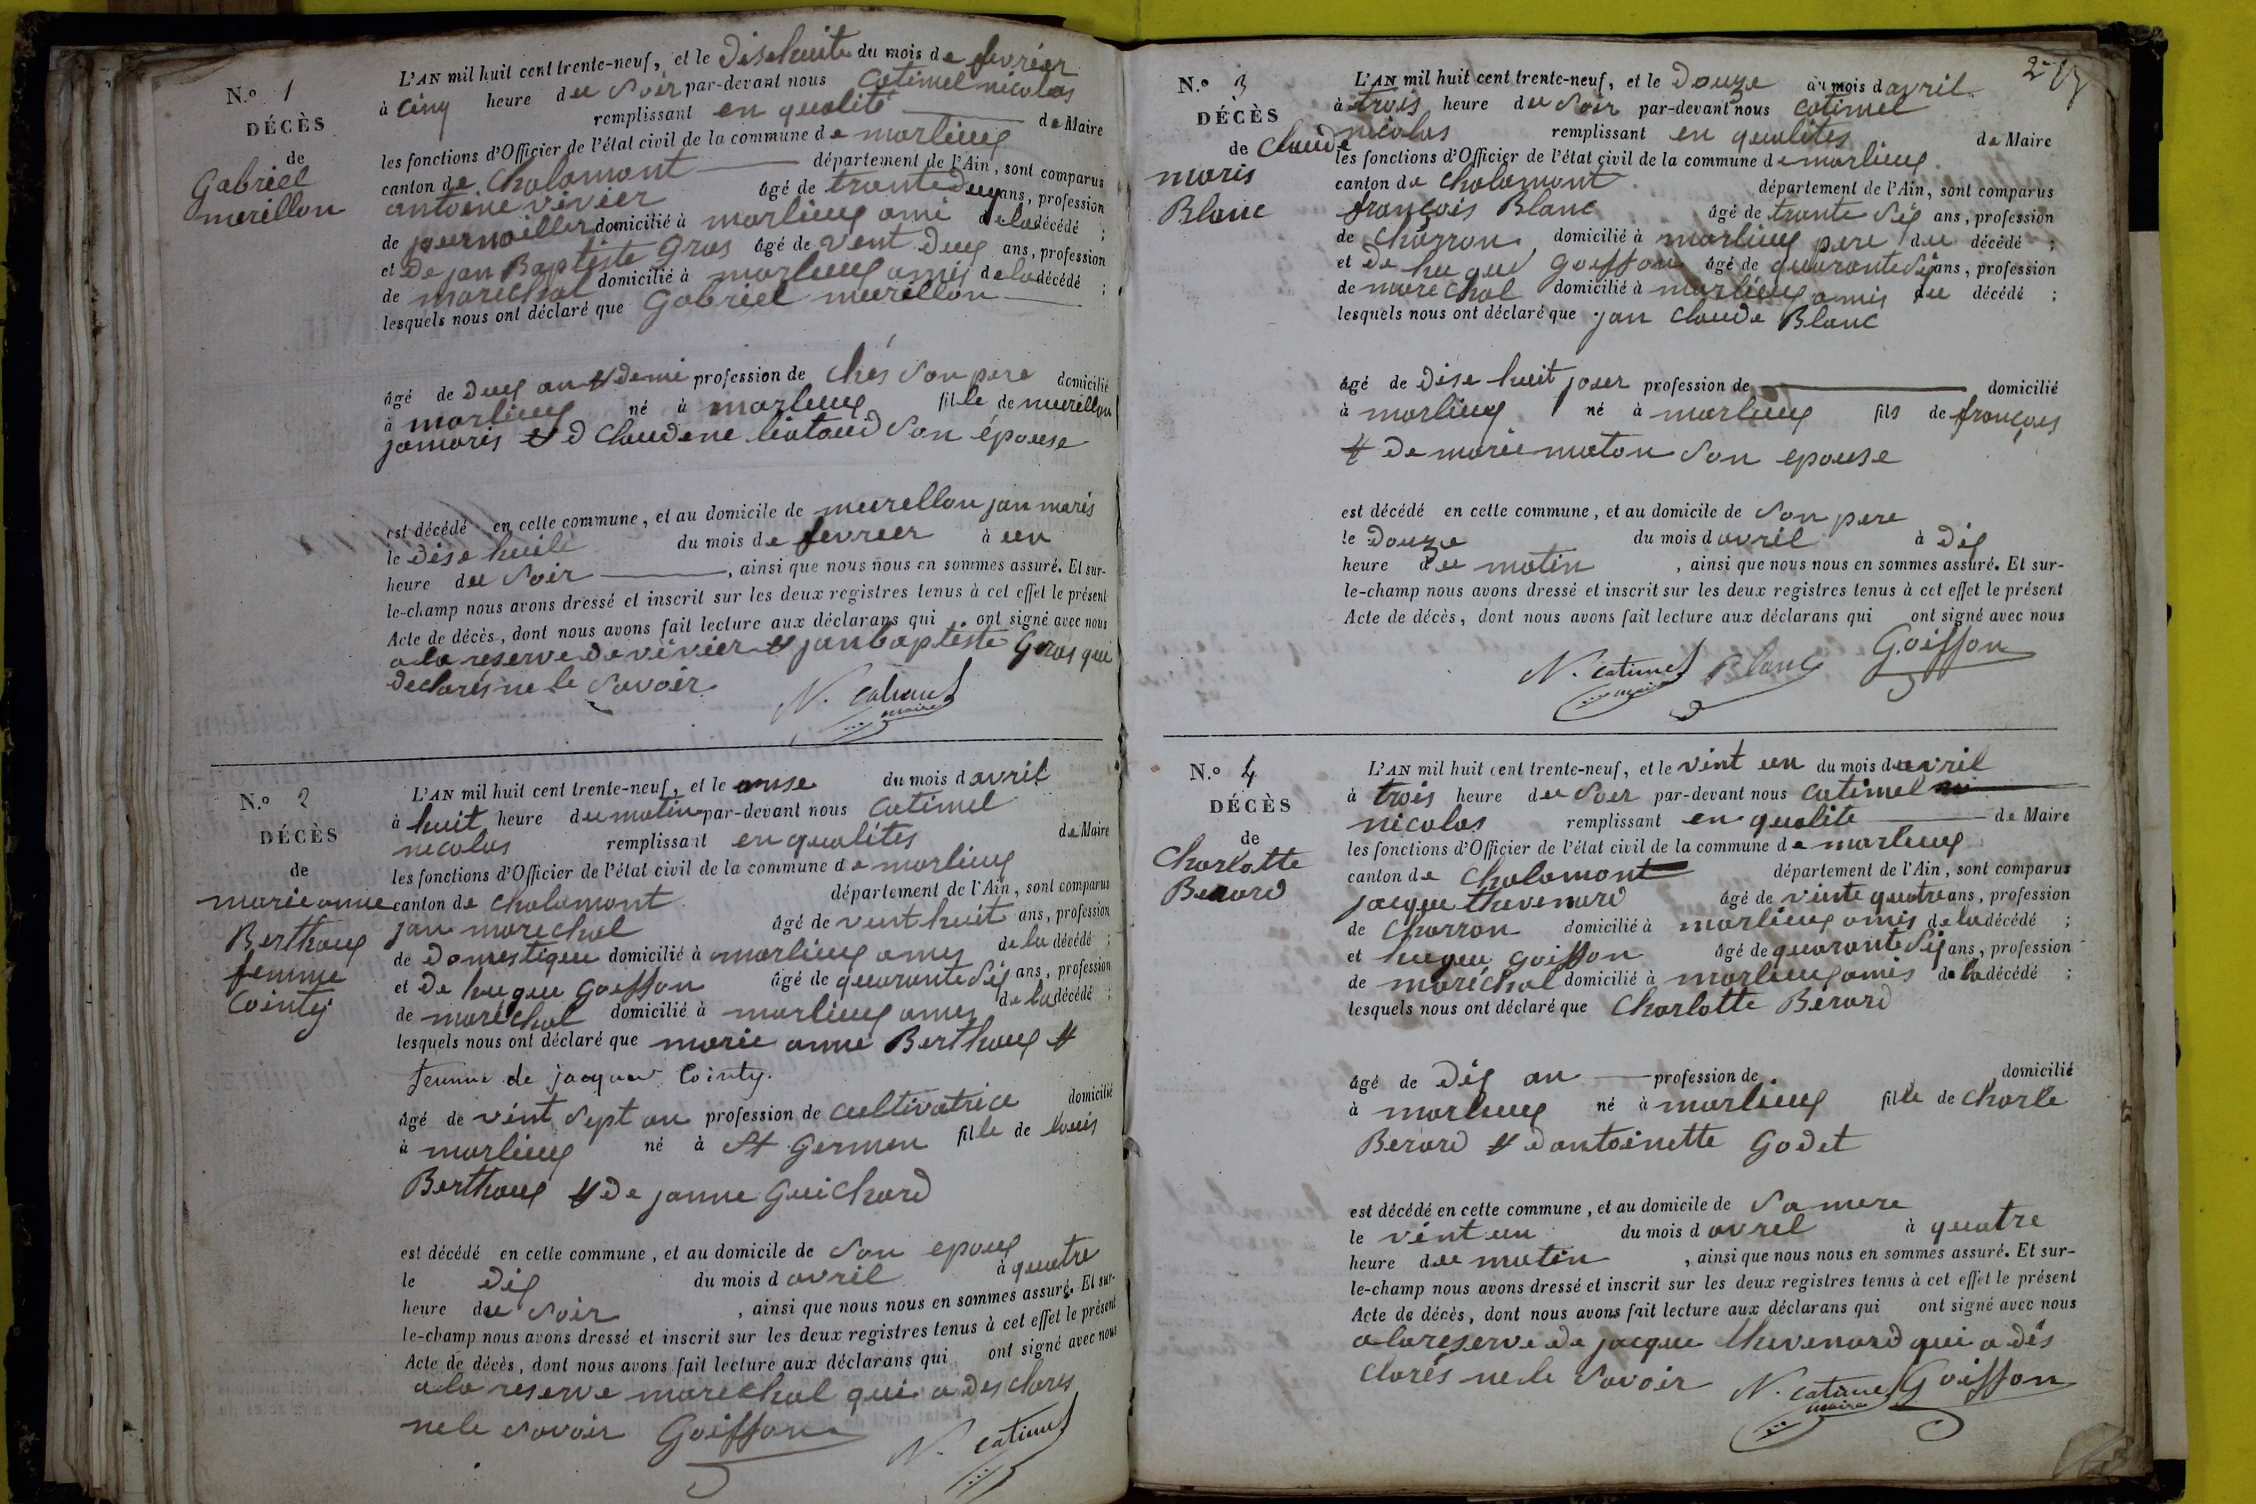 N.º 1
DÉCÈS
de
Gabriel
murillon
L'AN mil huit cent trente-neuf, et le disehuite du mois de fevriér
à cinq heure du Soir par-devant nous Catimel nicolas
remplissant en qualité de Maire
les fonctions d'Officier de l'état civil de la commune de marlieux
canton de Chalamont département de l'Ain, sont comparus
antoine vivier âgé de trante deux ans, profession
de journallier domicilié à marlieux ami de la décédé ;
et De jan Baptiste Gras âgé de vent deux ans, profession
de marechal domicilié à marlieux amis de la décédé ;
lesquels nous ont déclaré que Gabriel murillon
âgé de deux an et demi profession de chés Son pere domicilié
à marlieux né à marlieux fille de murillon
jamaris et d Claudene liataud Son épouse
est décédé en cette commune, et au domicile de murellon jan maris
le dise huite du mois de fevrier à un
heure du Soir, ainsi que nous nous en sommes assuré. Et sur-
le-champ nous avons dressé et inscrit sur les deux registres tenus à cet effet le présent
Acte de décès, dont nous avons fait lecture aux déclarans qui ont signé avec nous
a la reserve de vivier et jan baptiste Gras qui
declarés ne le Savoir N. Catimel
maire
N.º 2
DÉCÈS
de
marie anne
Berthoux
femme
Cointy
L'AN mil huit cent trente-neuf, et le onse du mois d avril
à huit heure du matin par-devant nous Catimel
nicolas remplissant en qualités de Maire
les fonctions d'Officier de l'état civil de la commune de marlieux
canton de chalamont département de l'Ain, sont comparus
jan marechal âgé de vent huit ans, profession
de domestique domicilié à marlieux amis de la décédé ;
et De hugue Goiffon âgé de quarante Six ans, profession
de maréchal domicilié à marlieux amis de la décédé ;
lesquels nous ont déclaré que marie anne Berthoux et
femme de jacques Cointy.
âgé de vint Sept an profession de cultivatrice domicilié
à marlieux né à St Germen fille de louis
Berthoux et De janne Guichard
est décédé en cette commune, et au domicile de Son epoux
le dix du mois d avril à quatre
heure du Soir, ainsi que nous nous en sommes assuré. Et sur-
le-champ nous avons dressé et inscrit sur les deux registres tenus à cet effet le présent
Acte de décès, dont nous avons fait lecture aux déclarans qui ont signé avec nous
a la reserve marechal qui a des clarés
ne le Savoir Goiffon N. Catimel
N.º 3
DÉCÈS
de Claude
maris
Blanc
L'AN mil huit cent trente-neuf, et le Douze du mois d avril
à trois heure du Soir par-devant nous Catimel
nicolas remplissant en qualités de Maire
les fonctions d'Officier de l'état civil de la commune de marlieux
canton de chalamont département de l'Ain, sont comparus
françois Blanc âgé de trante Six ans, profession
de charron domicilié à marlieux pere du décédé ;
et De hugue Goiffon âgé de quarante Six ans, profession
de marechal domicilié à marlieux amis du décédé ;
lesquels nous ont déclaré que jan Claude Blanc
âgé de dise huit jour profession de domicilié
à marlieux né à marlieux fils de françois
et De marie maton Son epouse
est décédé en cette commune, et au domicile de Son pere
le Douze du mois d avril à dix
heure du matin, ainsi que nous nous en sommes assuré. Et sur-
le-champ nous avons dressé et inscrit sur les deux registres tenus à cet effet le présent
Acte de décès, dont nous avons fait lecture aux déclarans qui ont signé avec nous
N. Catimel Blanc Goiffon
maire
N.º 4
DÉCÈS
de
Charlotte
Berard
L'AN mil huit cent trente-neuf, et le vint un du mois d avril
à trois heure du Soir par-devant nous Catimel
nicolas remplissant en qualite de Maire
les fonctions d'Officier de l'état civil de la commune de marlieux
canton de Chalamont département de l'Ain, sont comparus
jacque thevenard âgé de vinte quatre ans, profession
de Charron domicilié à marlieux amis de la décédé ;
et hugue Goiffon âgé de quarante Six ans, profession
de maréchal domicilié à marlieux amis de la décédé ;
lesquels nous ont déclaré que Charlotte Berard
âgé de dix an profession de domicilié
à marlieux né à marlieux fille de Charle
Berard et d antoinette Godet
est décédé en cette commune, et au domicile de Sa mere
le vint un du mois d avril à quatre
heure du matin, ainsi que nous nous en sommes assuré. Et sur-
le-champ nous avons dressé et inscrit sur les deux registres tenus à cet effet le présent
Acte de décès, dont nous avons fait lecture aux déclarans qui ont signé avec nous
a la reserve de jacque thevenard qui a dés
clarés ne le Savoir N. Catimel Goiffon
maire